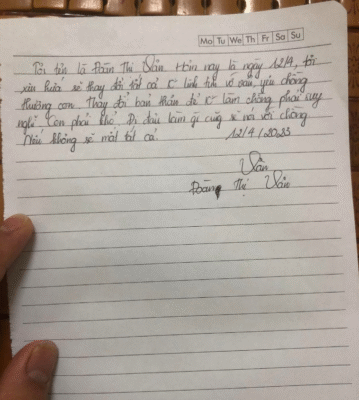 Mo Tu We Th Fr Sa Su
Tôi tên là Đoàn Thị Vân Hôm nay là ngày 12/4, tôi
xin hứa sẽ thay đổi tất cả k linh tinh vớ vẩn, yêu chồng
thương con. Thay đổi bản thân để k làm chồng phải suy
nghĩ Con phải khổ. Đi đâu làm gì cũg sẽ nói với chồng
Nếu không sẽ mất tất cả.
12/4/2023
Vân
Đoàn Thị Vân